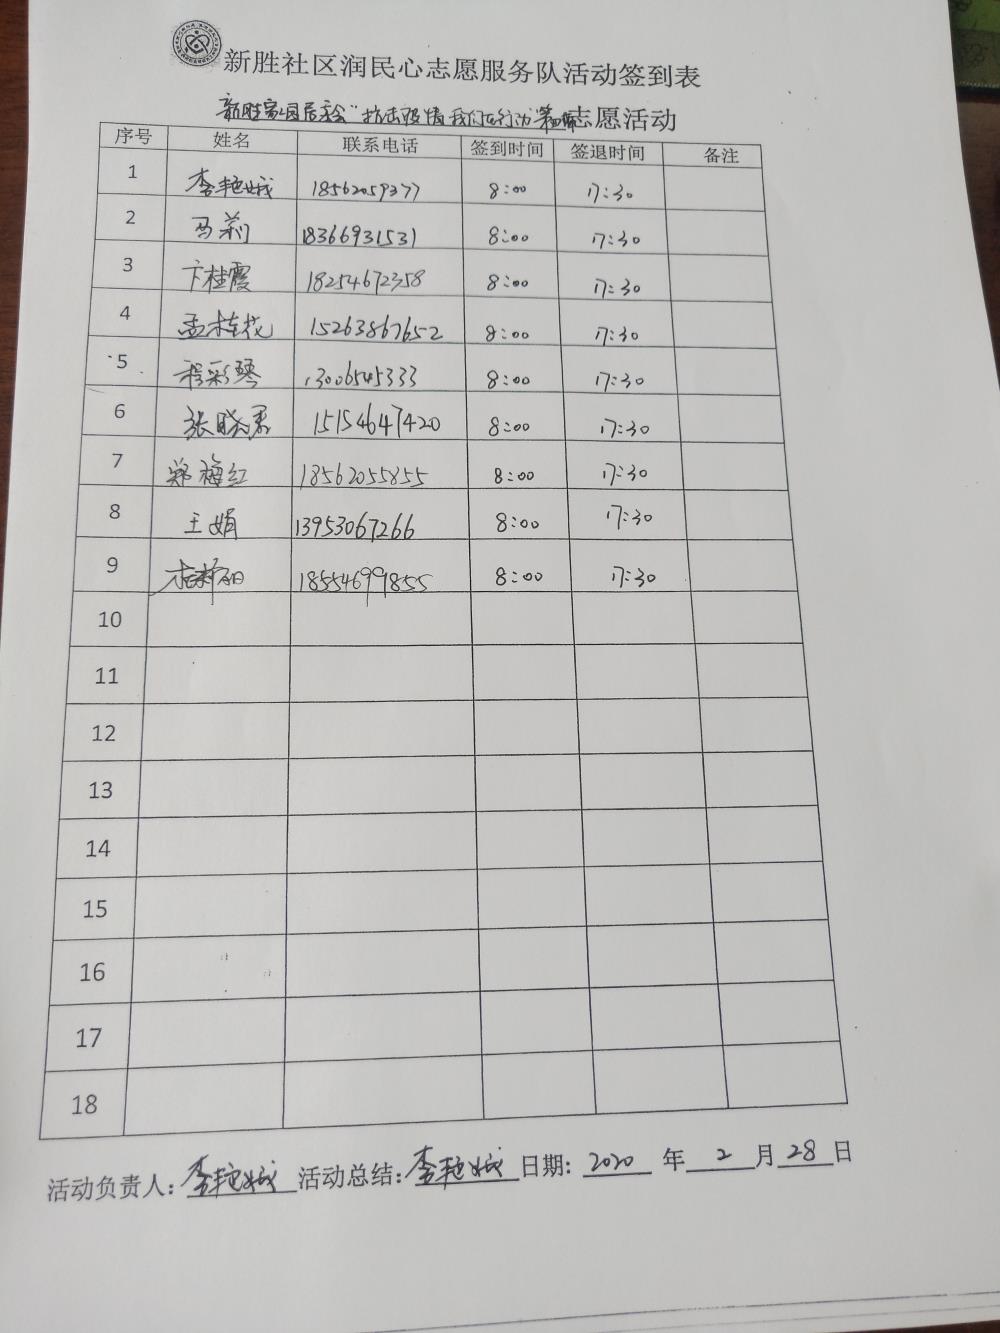 新胜社区润民心志愿服务队活动签到表
新胜家园居委会"抗击疫情 我们在行动"志愿活动
序号 姓名 联系电话 签到时间 签退时间 备注
1 李艳娥 18562059377 8:00 17:30
2 马莉 18366931531 8:00 17:30
3 卞桂霞 18254672358 8:00 17:30
4 孟桂花 15263867652 8:00 17:30
5 程彩琴 13006545333 8:00 17:30
6 张晓君 15154647420 8:00 17:30
7 郑梅红 18562055855 8:00 17:30
8 王娟 13953067266 8:00 17:30
9 18554699855 8:00 17:30
10
11
12
13
14
15
16
17
18
活动负责人: 李艳娥 活动总结: 李艳娥 日期: 2020 年 2 月 28 日